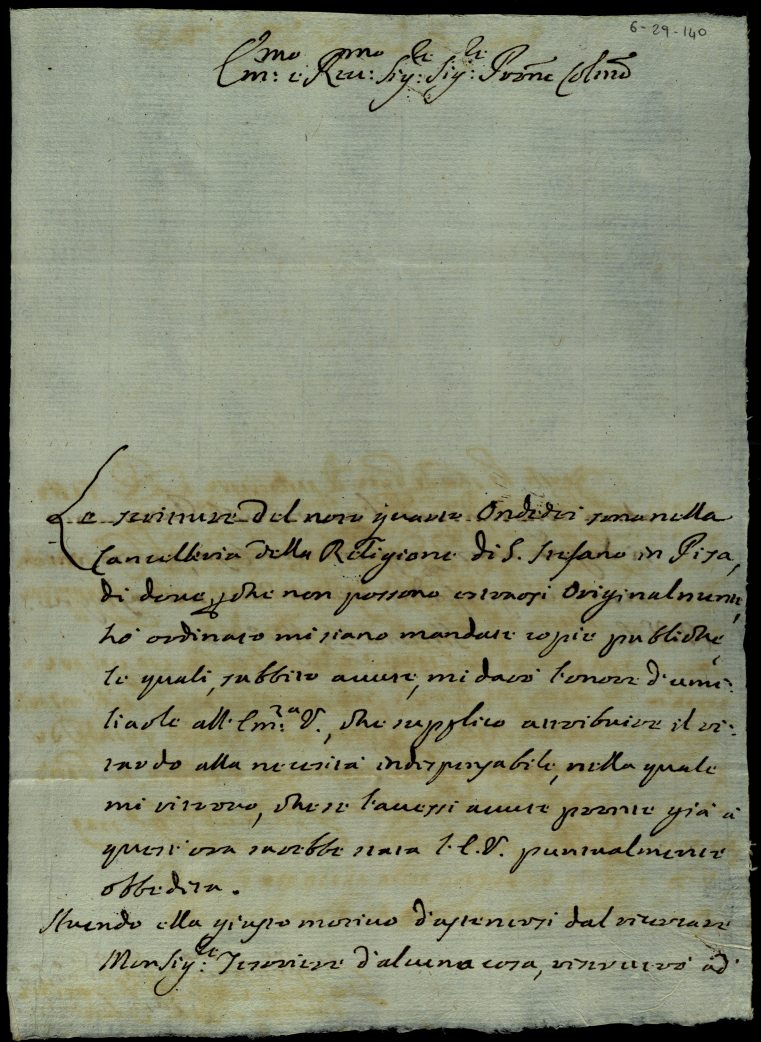 6-29-140
Em:mo e Reu:mo Sig:re Sig:re Pròne Colmo
Le scritture del noto quarto Ondedei sono nella
Cancelleria della Religione di S. Stefano in Pisa,
di doue, che non possono estrarsi Originalmente,
hò ordinato mi siano mandate copie publiche,
le quali, subbito auute, mi darò l'onore d'umi:
liarle all'Em:za V., che supplico attribuire il ri:
tardo alla necessità indispensabile, nella quale
mi ritrouo, che se l'auessi auute pronte già à
quest'ora sarebbe stata l'E.V. puntualmente
obbedita.
Auendo ella giusto motiuo d'astenersi dal ricercare
Monsig:re Tesoriere d'alcuna cosa, riseruerò ad